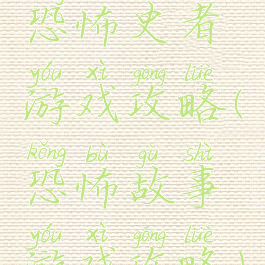 恐怖史者
yóu xì gōng lüè
游戏攻略(
kǒng bù gù shì
恐怖故事
yóu xì gōng lüè
游戏攻略)